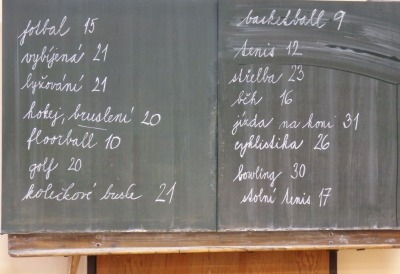 fotbal 15
vybíjená 21
lyžování 21
hokej, bruslení 20
floorball 10
golf 20
kolečkové brusle 21
basketball 9
tenis 12
střelba 23
běh 16
jízda na koni 31
cyklistika 26
bowling 30
stolní tenis 17